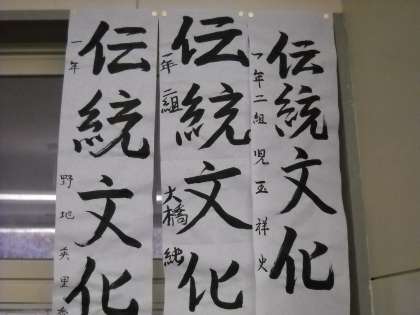 伝統文化
一年二組 児玉祥史
伝統文化
一年二組 大橋純
伝統文化
一年 野地